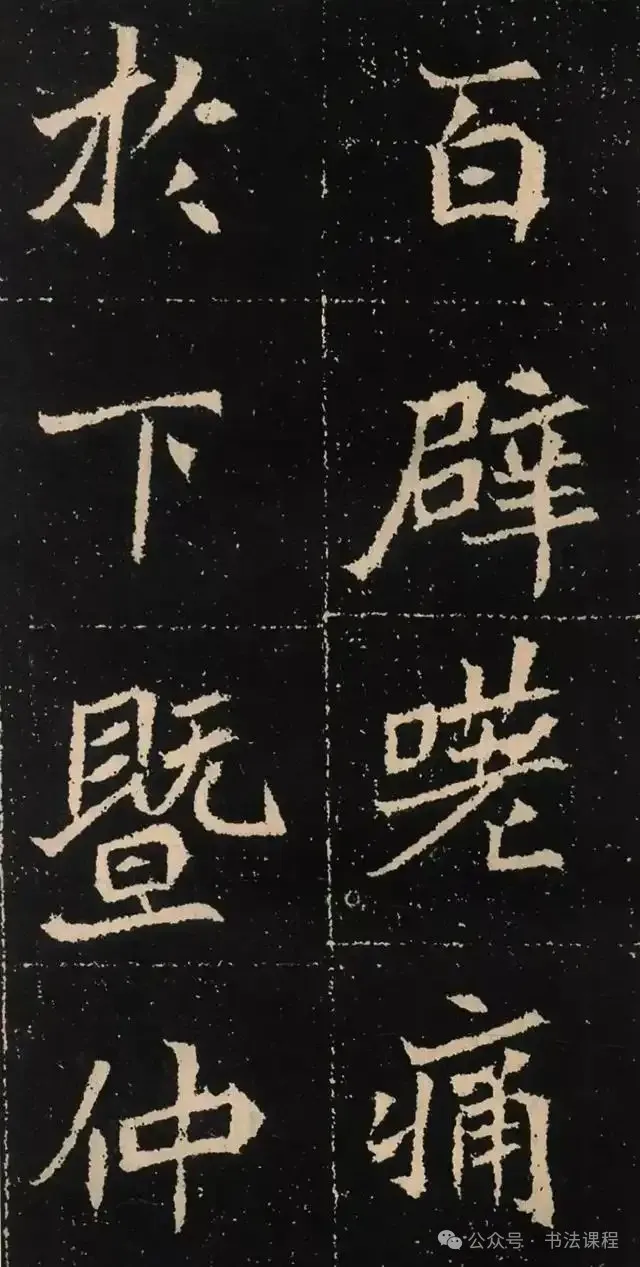 百辟嗟痛
於下暨仲
公众号 · 书法课程